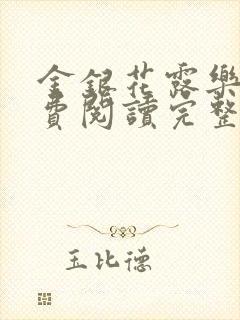 金銀花露樂
費閱讀完整
玉比德